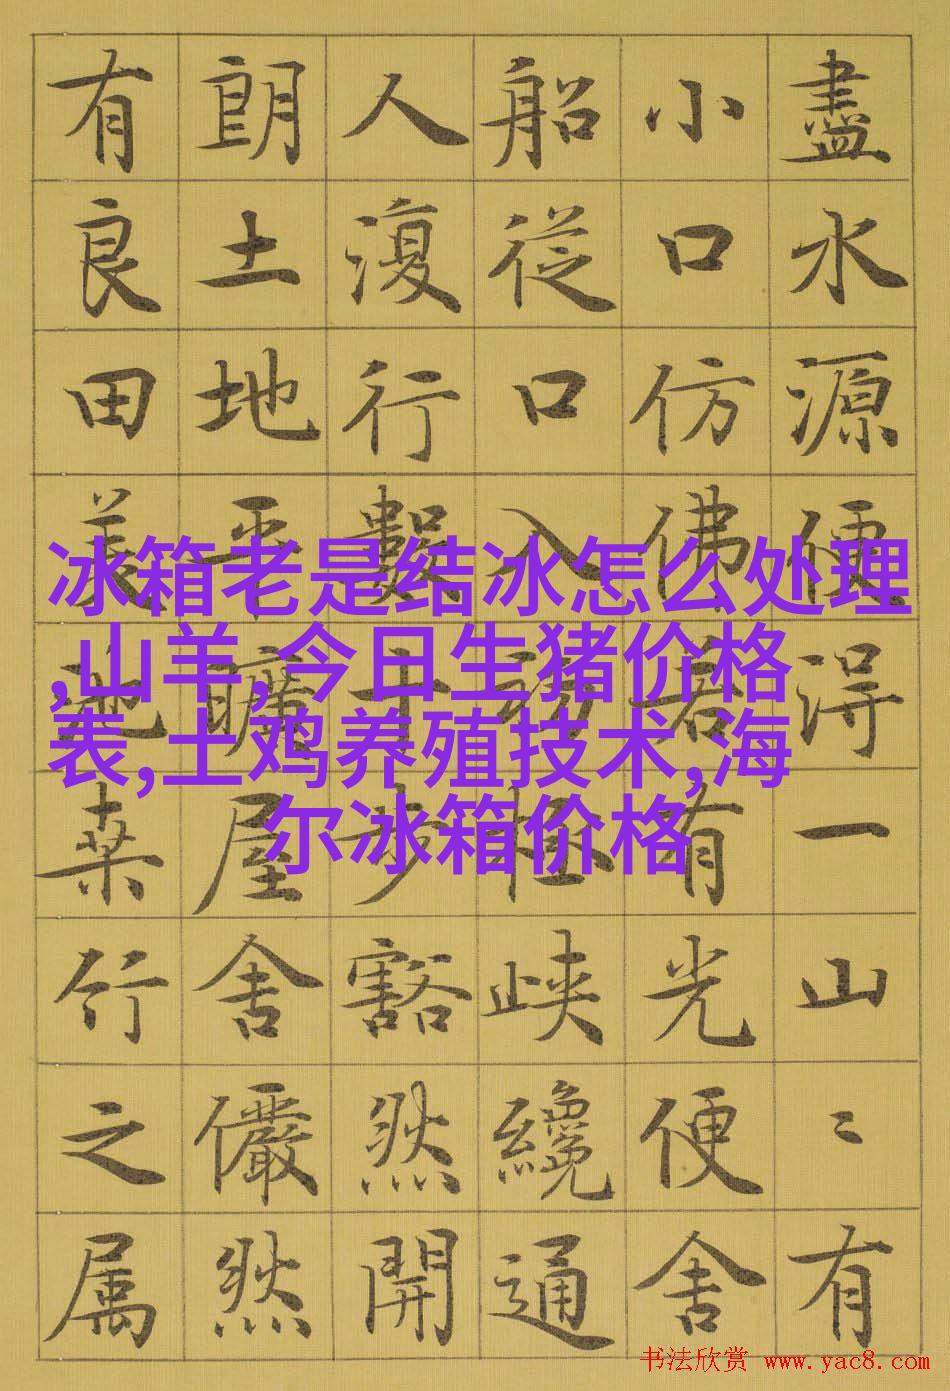 盡水源便得一山〻有
小口仿佛若有光便舍
船從口入初極峽纔通
人復行數十步豁然開
朗土地平曠屋舍儼然
有良田美池桑竹之属
冰箱老是结冰怎么处理
,山羊,今日生猪价格
表,土鸡养殖技术,海
尔冰箱价格
书法欣赏 www.yac8.com